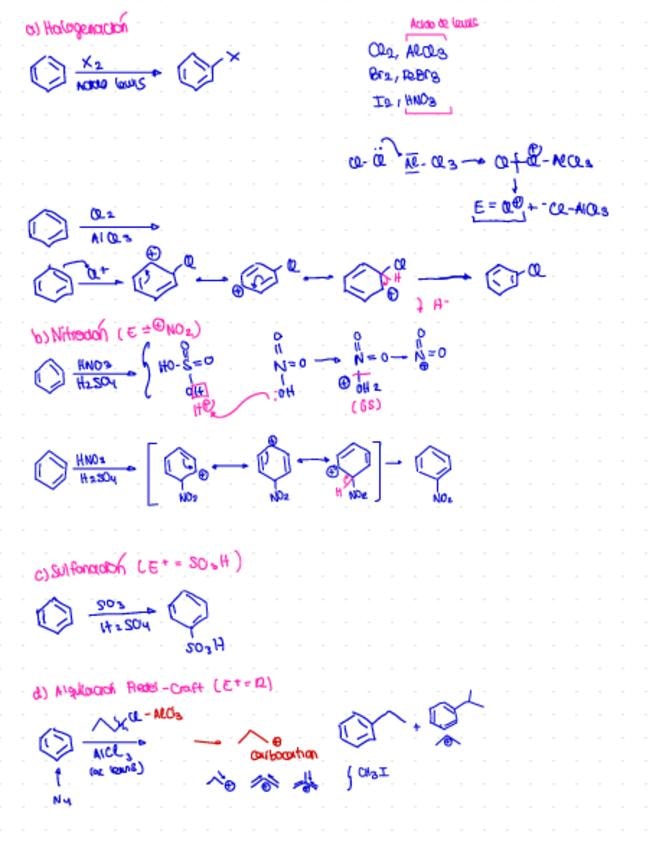 a) Halogenación
X2
Acido lewis
X
Acido de lewis
Cl2, AlCl3
Br2, FeBr3
I2, HNO3
Cl-Cl Al-Cl3 → Cl-Cl-AlCl3
E = Cl⊕ + ⁻Cl-AlCl3
Cl2
AlCl3
Cl+
⊕ Cl
⊕ Cl
Cl
H
⊕
Cl
H-
b) Nitración (E = ⊕NO2)
HNO3
H2SO4
O
HO-S=O
OH
H⊕
O
N=O
:OH
O
N=O
⊕OH2
(GS)
O
N=O
⊕
HNO3
H2SO4
⊕
NO2
⊕
NO2
⊕
H NO2
NO2
c) Sulfonación (E+ = SO3H)
SO3
H2SO4
SO3H
d) Alquilación Friedel-Craft (E+ = R)
Cl - AlCl3
AlCl3
(ac lewis)
Nu
⊕
carbocation
⊕ ⊕ ⊕
+
⊕
CH3I